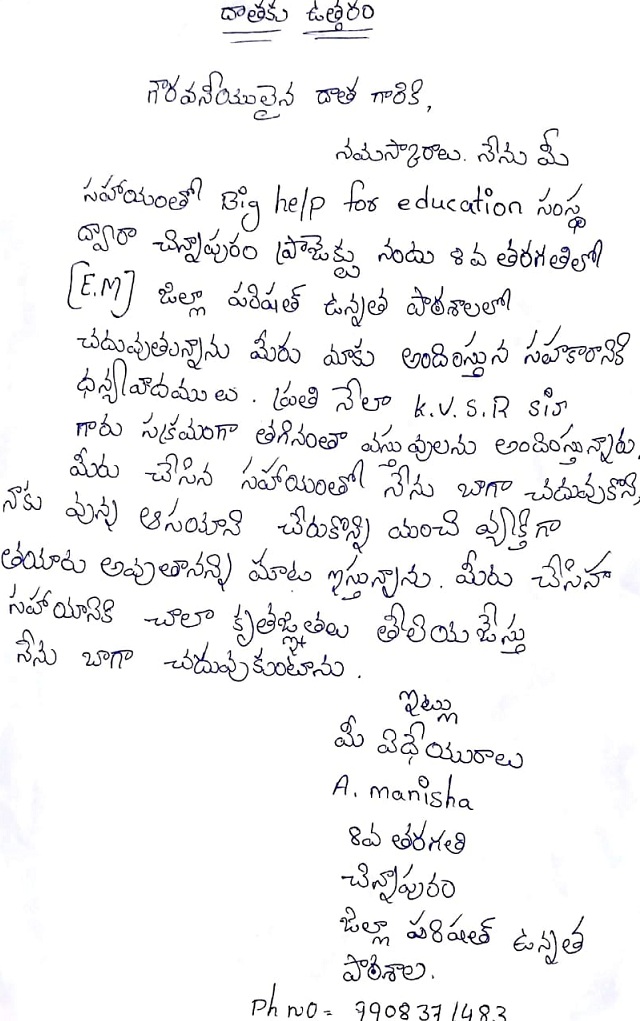 దాతకు ఉత్తరం
గౌరవనీయులైన దాత గారికి,
నమస్కారాలు. నేను మీ
సహాయంతో Big help for education సంస్థ
ద్వారా చిన్నాపురం ప్రాజెక్టు నందు 8వ తరగతిలో
[E.M] జిల్లా పరిషత్ ఉన్నత పాఠశాలలో
చదువుతున్నాను మీరు మాకు అందిస్తున సహకారానికి
ధన్యవాదములు. ప్రతి నేలా K.V.S.R sir
గారు సక్రమంగా తగినంతా వస్తువులను అందిస్తున్నారు.
మీరు చేసిన సహాయంతో నేను బాగా చదువుకొని,
నాకు వున్న ఆసయాని చేరుకొన్ని మంచి వ్యక్తిగా
తయారు అవుతానన్ని మాట ఇస్తున్నాను. మీరు చేసినా
సహాయానికి చాలా కృతజ్ఞతలు తేలియజేస్తు
నేను బాగా చదువుకుంటాను.
ఇట్లు
మీ విధేయురాలు
A. manisha
8వ తరగతి
చిన్నాపురం
జిల్లా పరిషత్ ఉన్నత
పాఠశాల.
Ph no = 9908371483